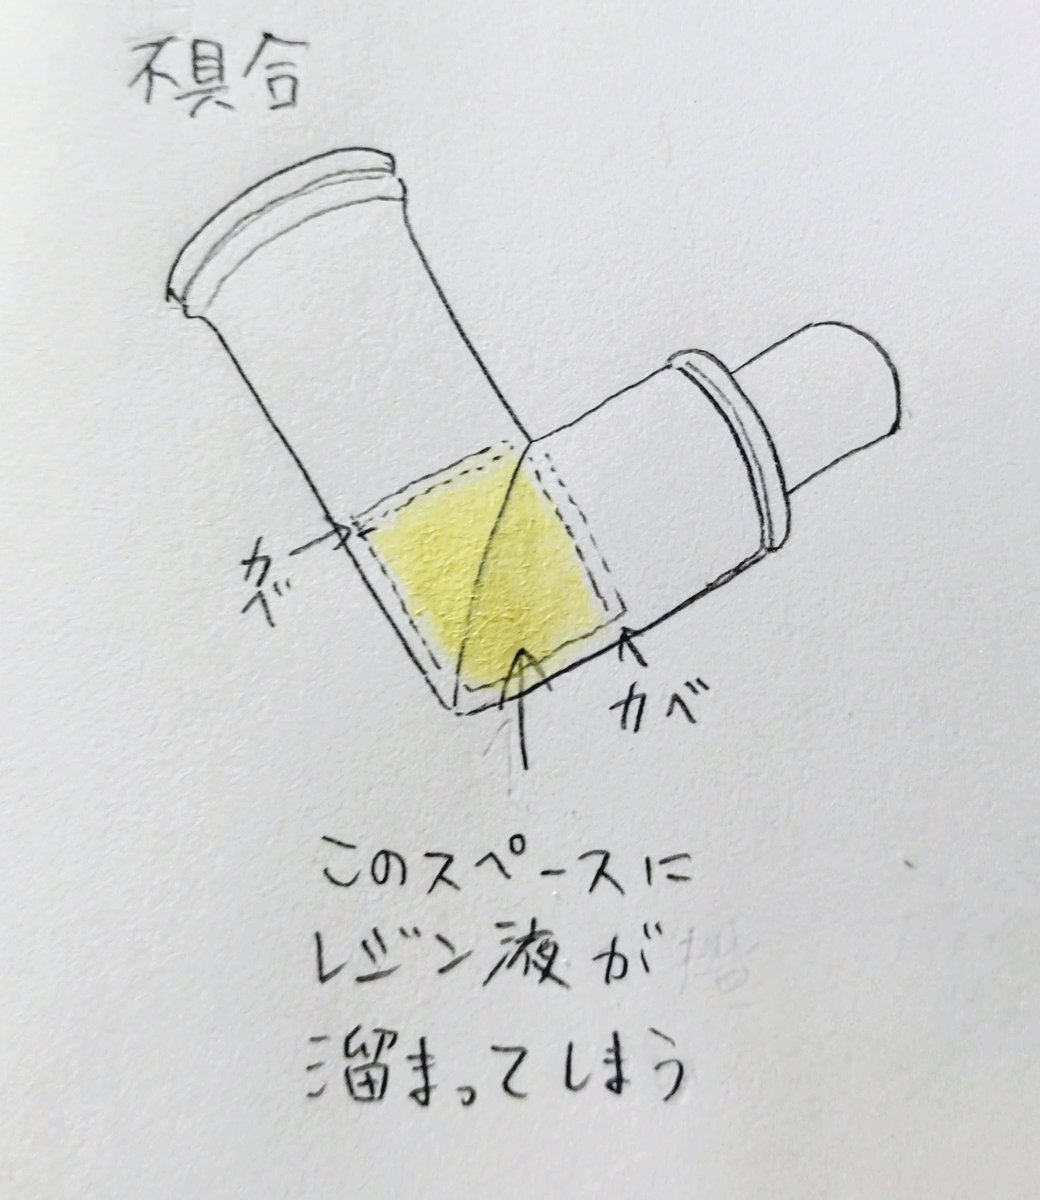 不具合
カベ
カベ
このスペースに
レジン液が
溜まってしまう